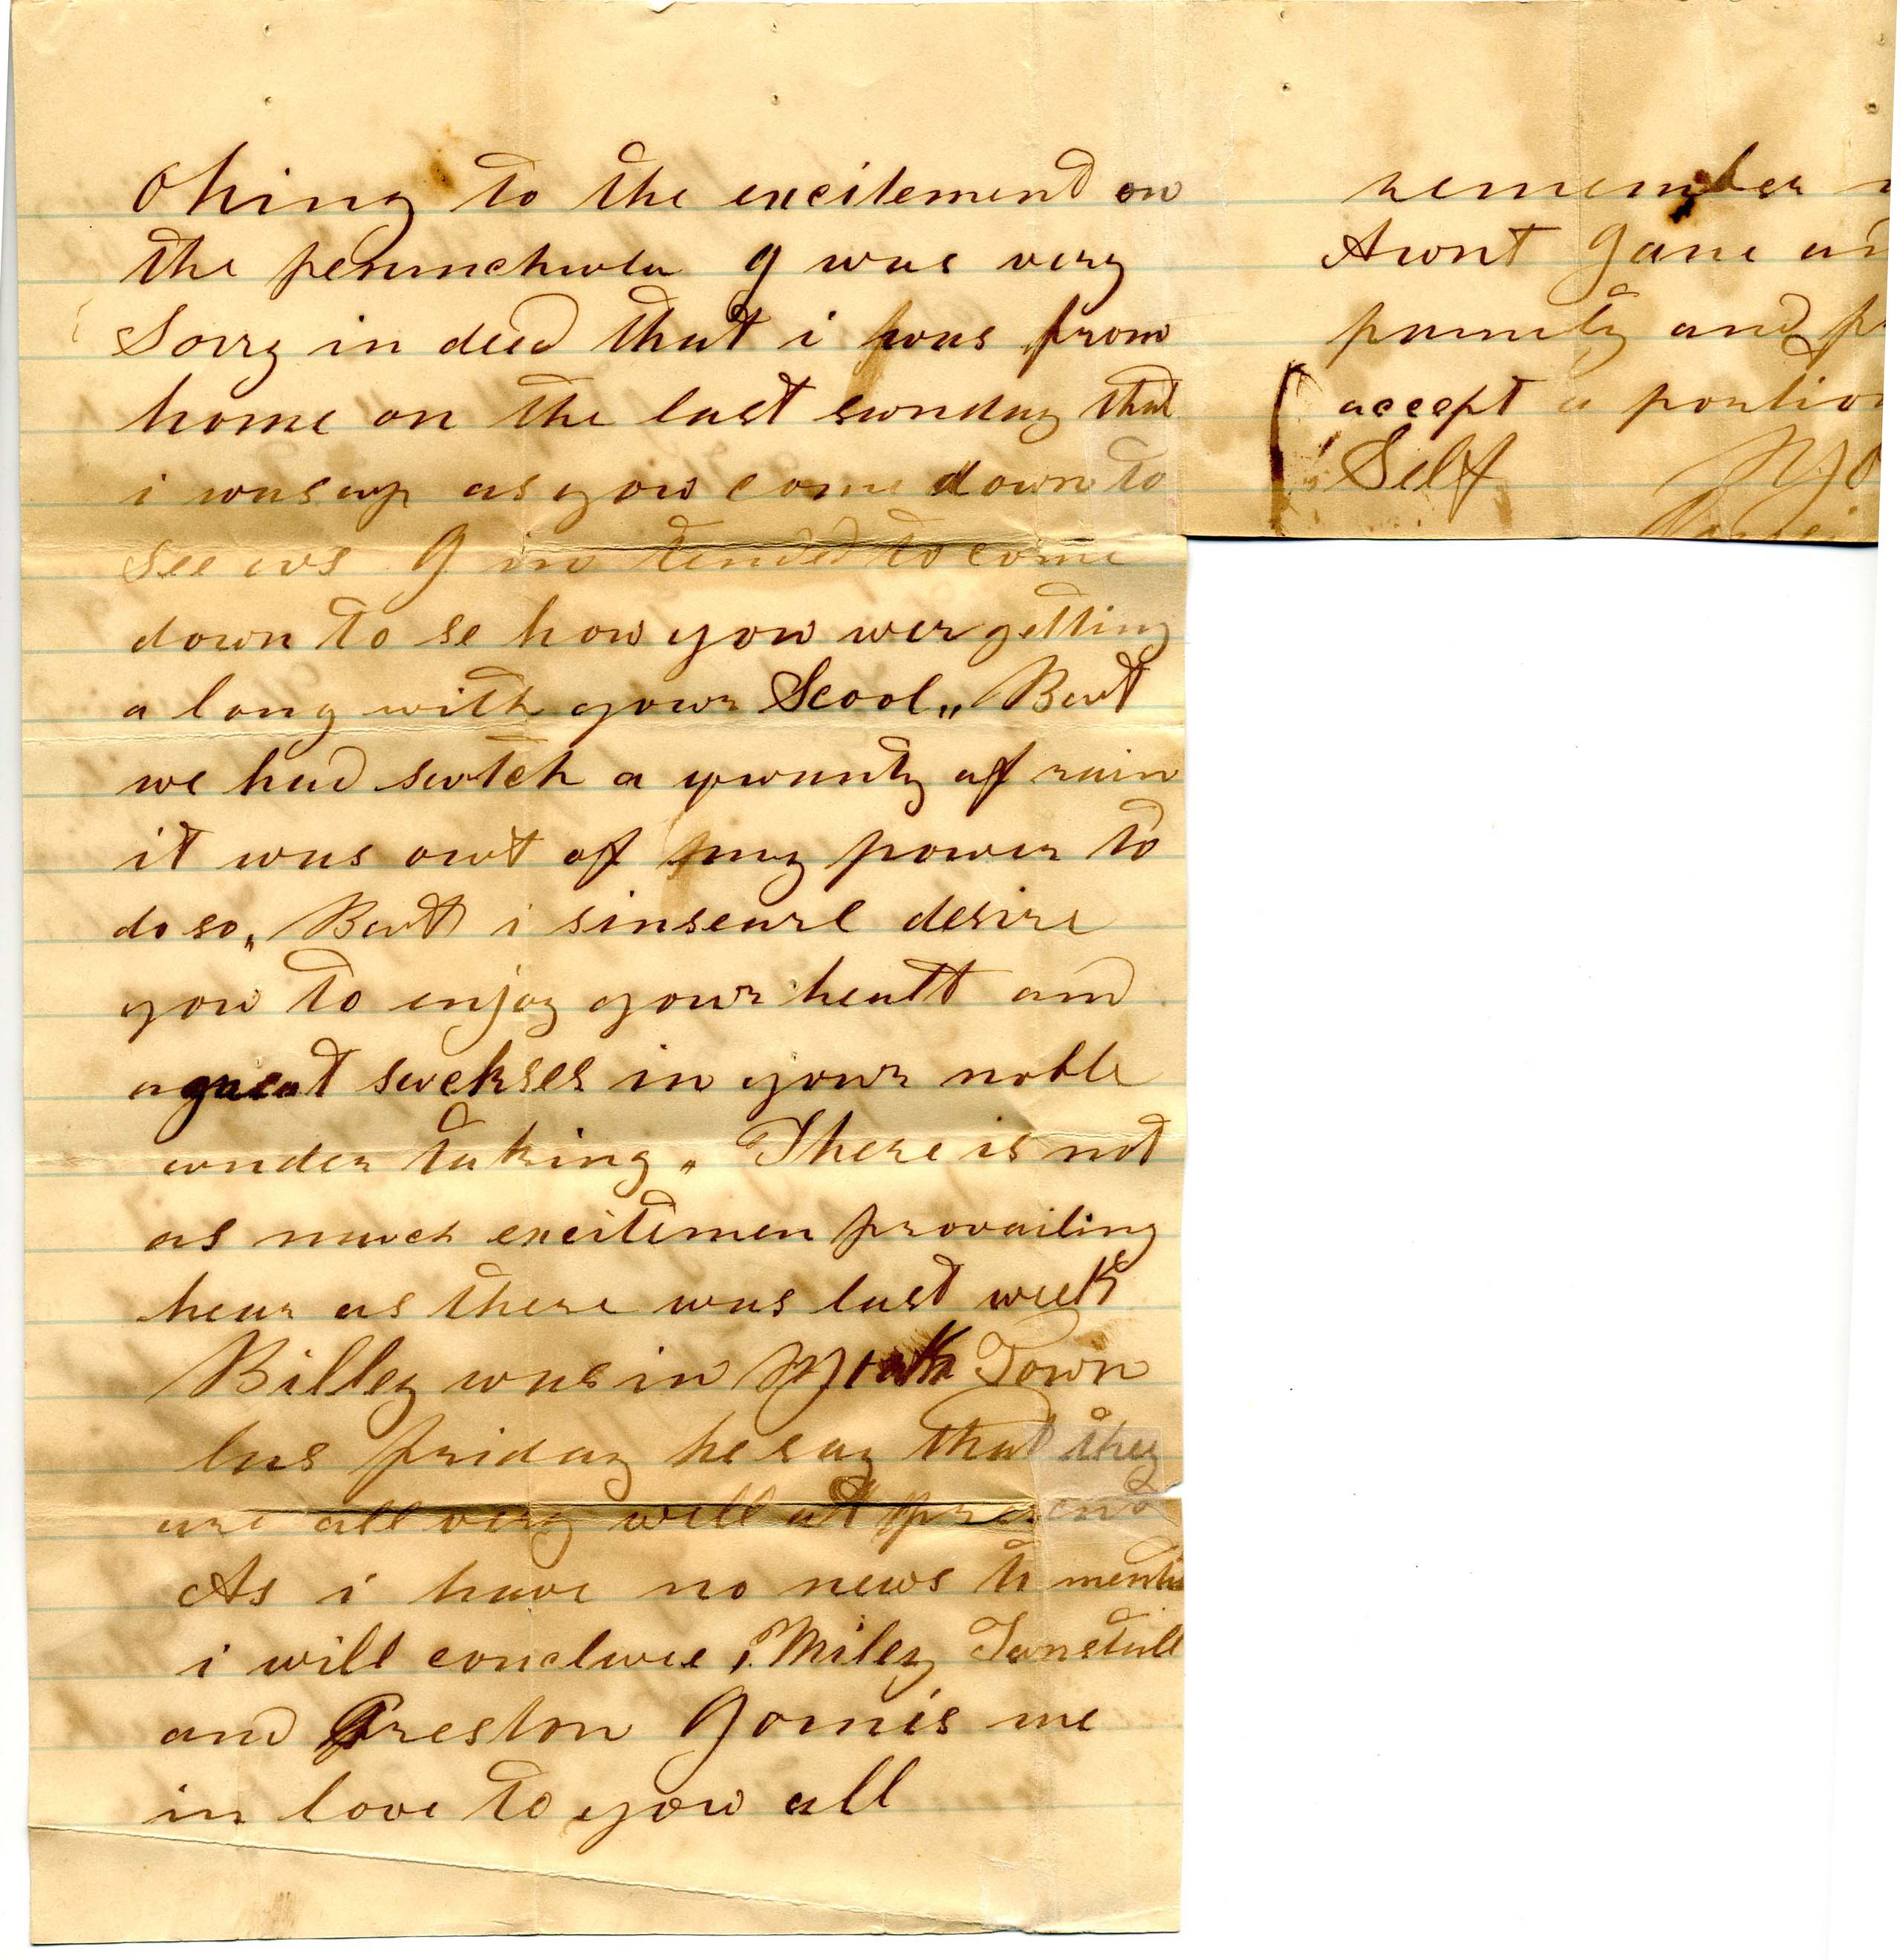 Ohing to the excitement on
the penunchula I was very
Sorry in deed that i was from
home on the last sunday that
i was up as you come down to
See us I in tended to come
down to se how you wer getting
a long with your Scool,, But
we had sutch a qwanty of rain
it was out of my power to
do so,, But i sinsearl desire
you to enjoy your healt and
a great suckses in your noble
under taking,, There is not
as much excitemen provailing
hear as there was last week
Billey was in York Town
las friday he say that they
are all very well at present
As i have no news to mentio
i will conclude Miley Tunstall
and Preston Joines me
in love to you all
remember
Aunt Jane an
and
accept a portion
Self Yo